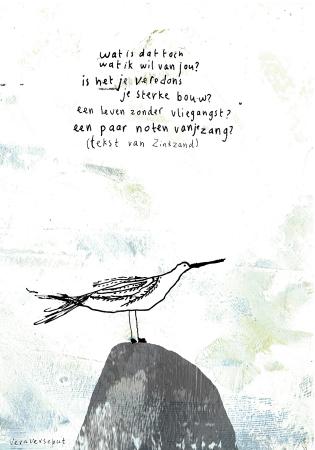 wat is dat toch
wat ik wil van jou?
is het je veredons
je sterke bouw?
een leven zonder vliegangst?
een paar noten van je zang?
(tekst van Zinkzand)
veraverseput